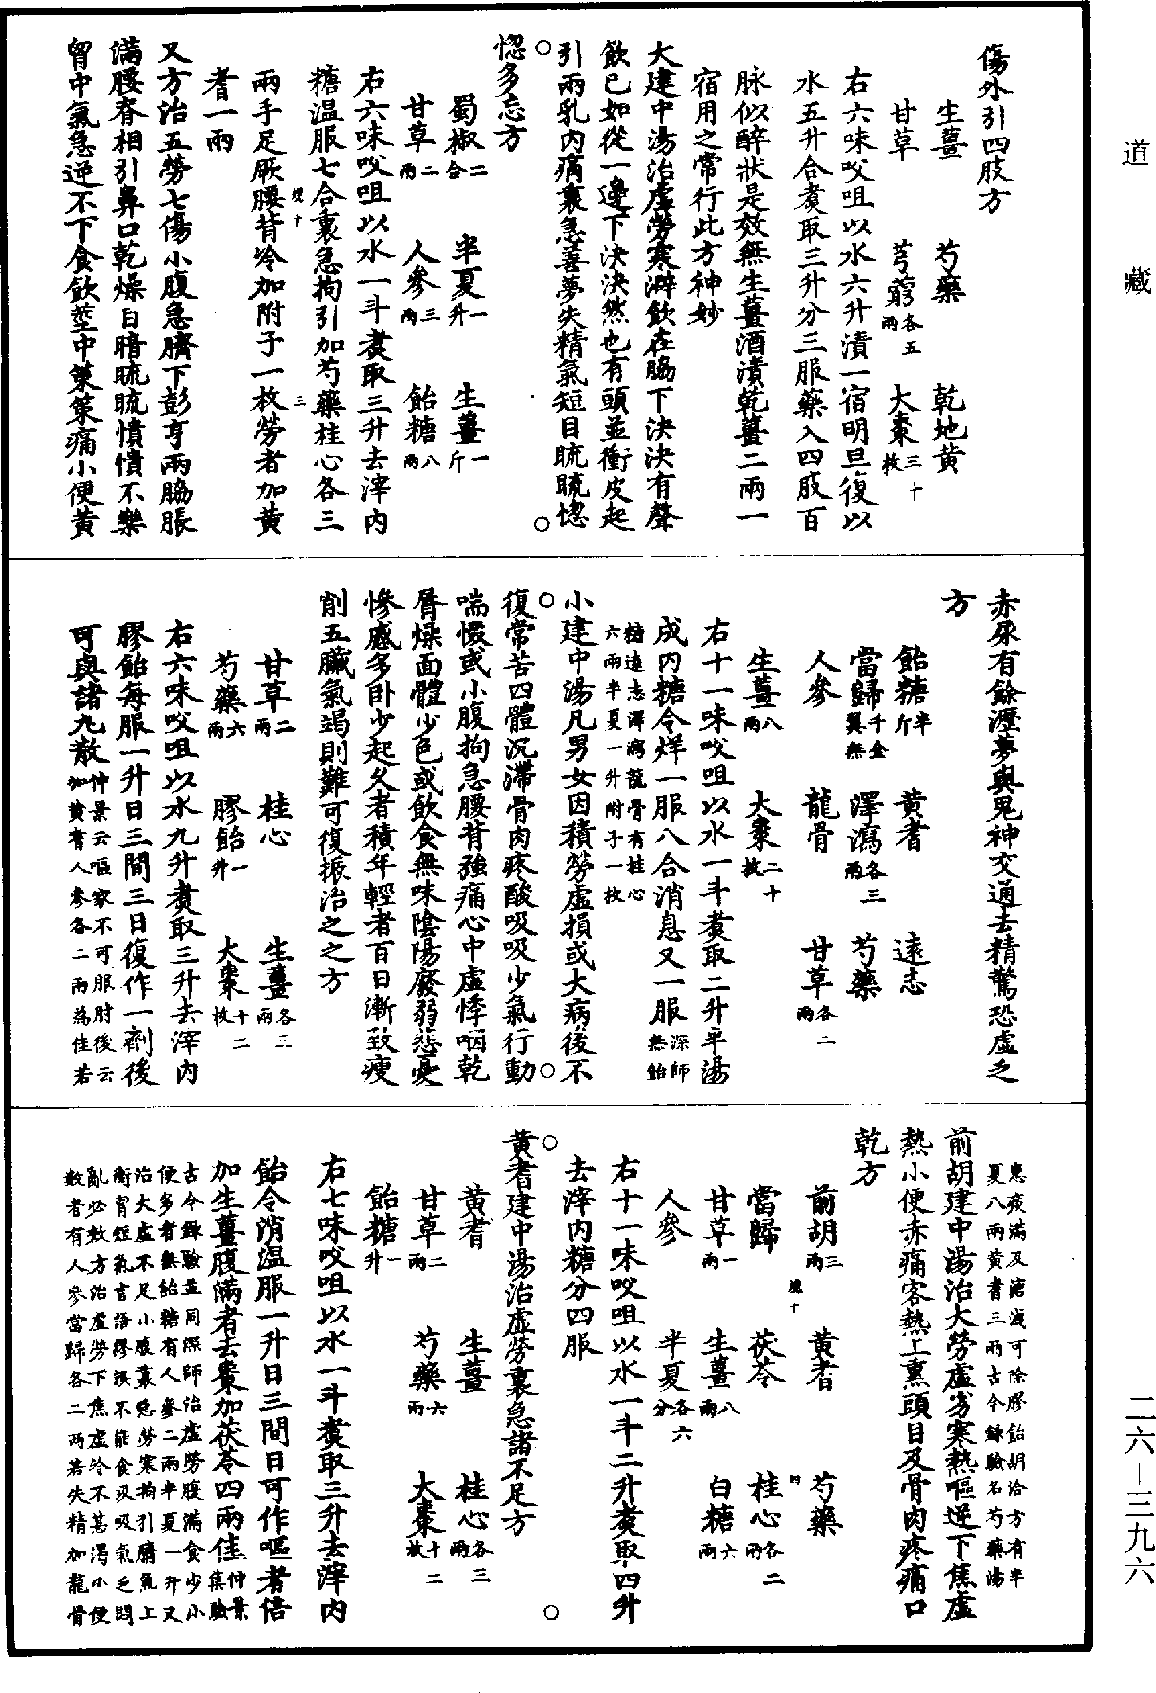 傷外引四肢方
生薑 芍藥 乾地黃
甘草 芎藭各五兩 大棗三十枚
右六味㕮咀以水六升漬一宿明旦復以
水五升合煑取三升分三服藥入四肢百
脉似醉狀是效無生薑酒漬乾薑二兩一
宿用之常行此方神妙
大建中湯治虛勞寒澼飲在脇下決決有聲
飲已如從一邊下決決然也有頭並衝皮起
引兩乳内痛裏急善夢失精氣短目𥆨𥆨惚
惚多忘方
蜀椒二合 半夏一升 生薑一斤
甘草二兩 人參三兩 飴糖八兩
右六味㕮咀以水一斗煑取三升去滓内
糖温服七合裏急拘引加芍藥桂心各三
兩手足厥腰背冷加附子一枚勞者加黃
耆一兩
又方治五勞七傷小腹急臍下彭亨兩脇脹
滿腰脊相引鼻口乾燥目暗𥆨𥆨憒憒不樂
胷中氣急逆不下食飲莖中策策痛小便黃
煌十
三
赤尿有餘瀝夢與鬼神交通去精驚恐虛乏
方
飴糖半斤 黃耆 遠志
當歸千金翼無 澤瀉各三兩 芍藥
人參 龍骨 甘草各二兩
生薑八兩 大棗二十枚
右十一味㕮咀以水一斗煑取二升半湯
成内糖令烊一服八合消息又一服深師無飴
糖遠志澤瀉龍骨有桂心
六兩半夏一升附子一枚
小建中湯凡男女因積勞虛損或大病後不
復常苦四體沉滯骨肉疼酸吸吸少氣行動
喘惙或小腹拘急腰背強痛心中虛悸咽乾
脣燥面體少色或飲食無味陰陽廢弱悲憂
慘慼多卧少起久者積年輕者百日漸致瘦
削五臟氣竭則難可復振治之之方
甘草二兩 桂心 生薑各三兩
芍藥六兩 膠飴一升 大棗十二枚
右六味㕮咀以水九升煑取三升去滓内
膠飴每服一升日三間三日復作一劑後
可與諸丸散仲景云嘔家不可服肘後云
加黃耆人參各二兩為佳若
患痰滿及溏洩可除膠飴胡洽方有半
夏八兩黃耆三兩古今録驗名芍藥湯
前胡建中湯治大勞虛劣寒熱嘔逆下焦虛
熱小便赤痛客熱上熏頭目及骨肉疼痛口
乾方
前胡三兩 黃耆 芍藥
當歸 茯苓 桂心各二兩
甘草一兩 生薑八兩 白糖六兩
人參 半夏各六分
右十一味㕮咀以水一斗二升煑取四升
去滓内糖分四服
黃耆建中湯治虛勞裏急諸不足方
黃耆 生薑 桂心各三兩
甘草二兩 芍藥六兩 大棗十二枚
飴糖一升
右七味㕮咀以水一斗煑取三升去滓内
飴令消温服一升日三間日可作嘔者倍
加生薑腹滿者去棗加茯苓四兩佳仲景集驗
古今録驗並同深師治虛勞腹滿食少小
便多者無飴糖有人參二兩半夏一升又
治大虛不足小腹裏急勞寒拘引臍氣上
衝胷短氣言語謬誤不能食吸吸氣乏悶
亂必效方治虛勞下焦虛冷不甚渴小便
數者有人參當歸各二兩若失精加龍骨
道藏
二六—三九六